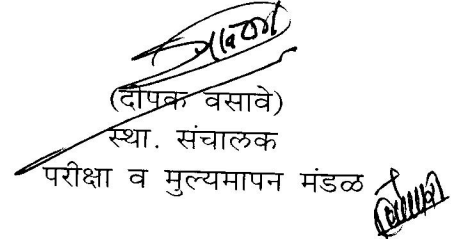 (दीपक वसावे)
स्था. संचालक
परीक्षा व मुल्यमापन मंडळ